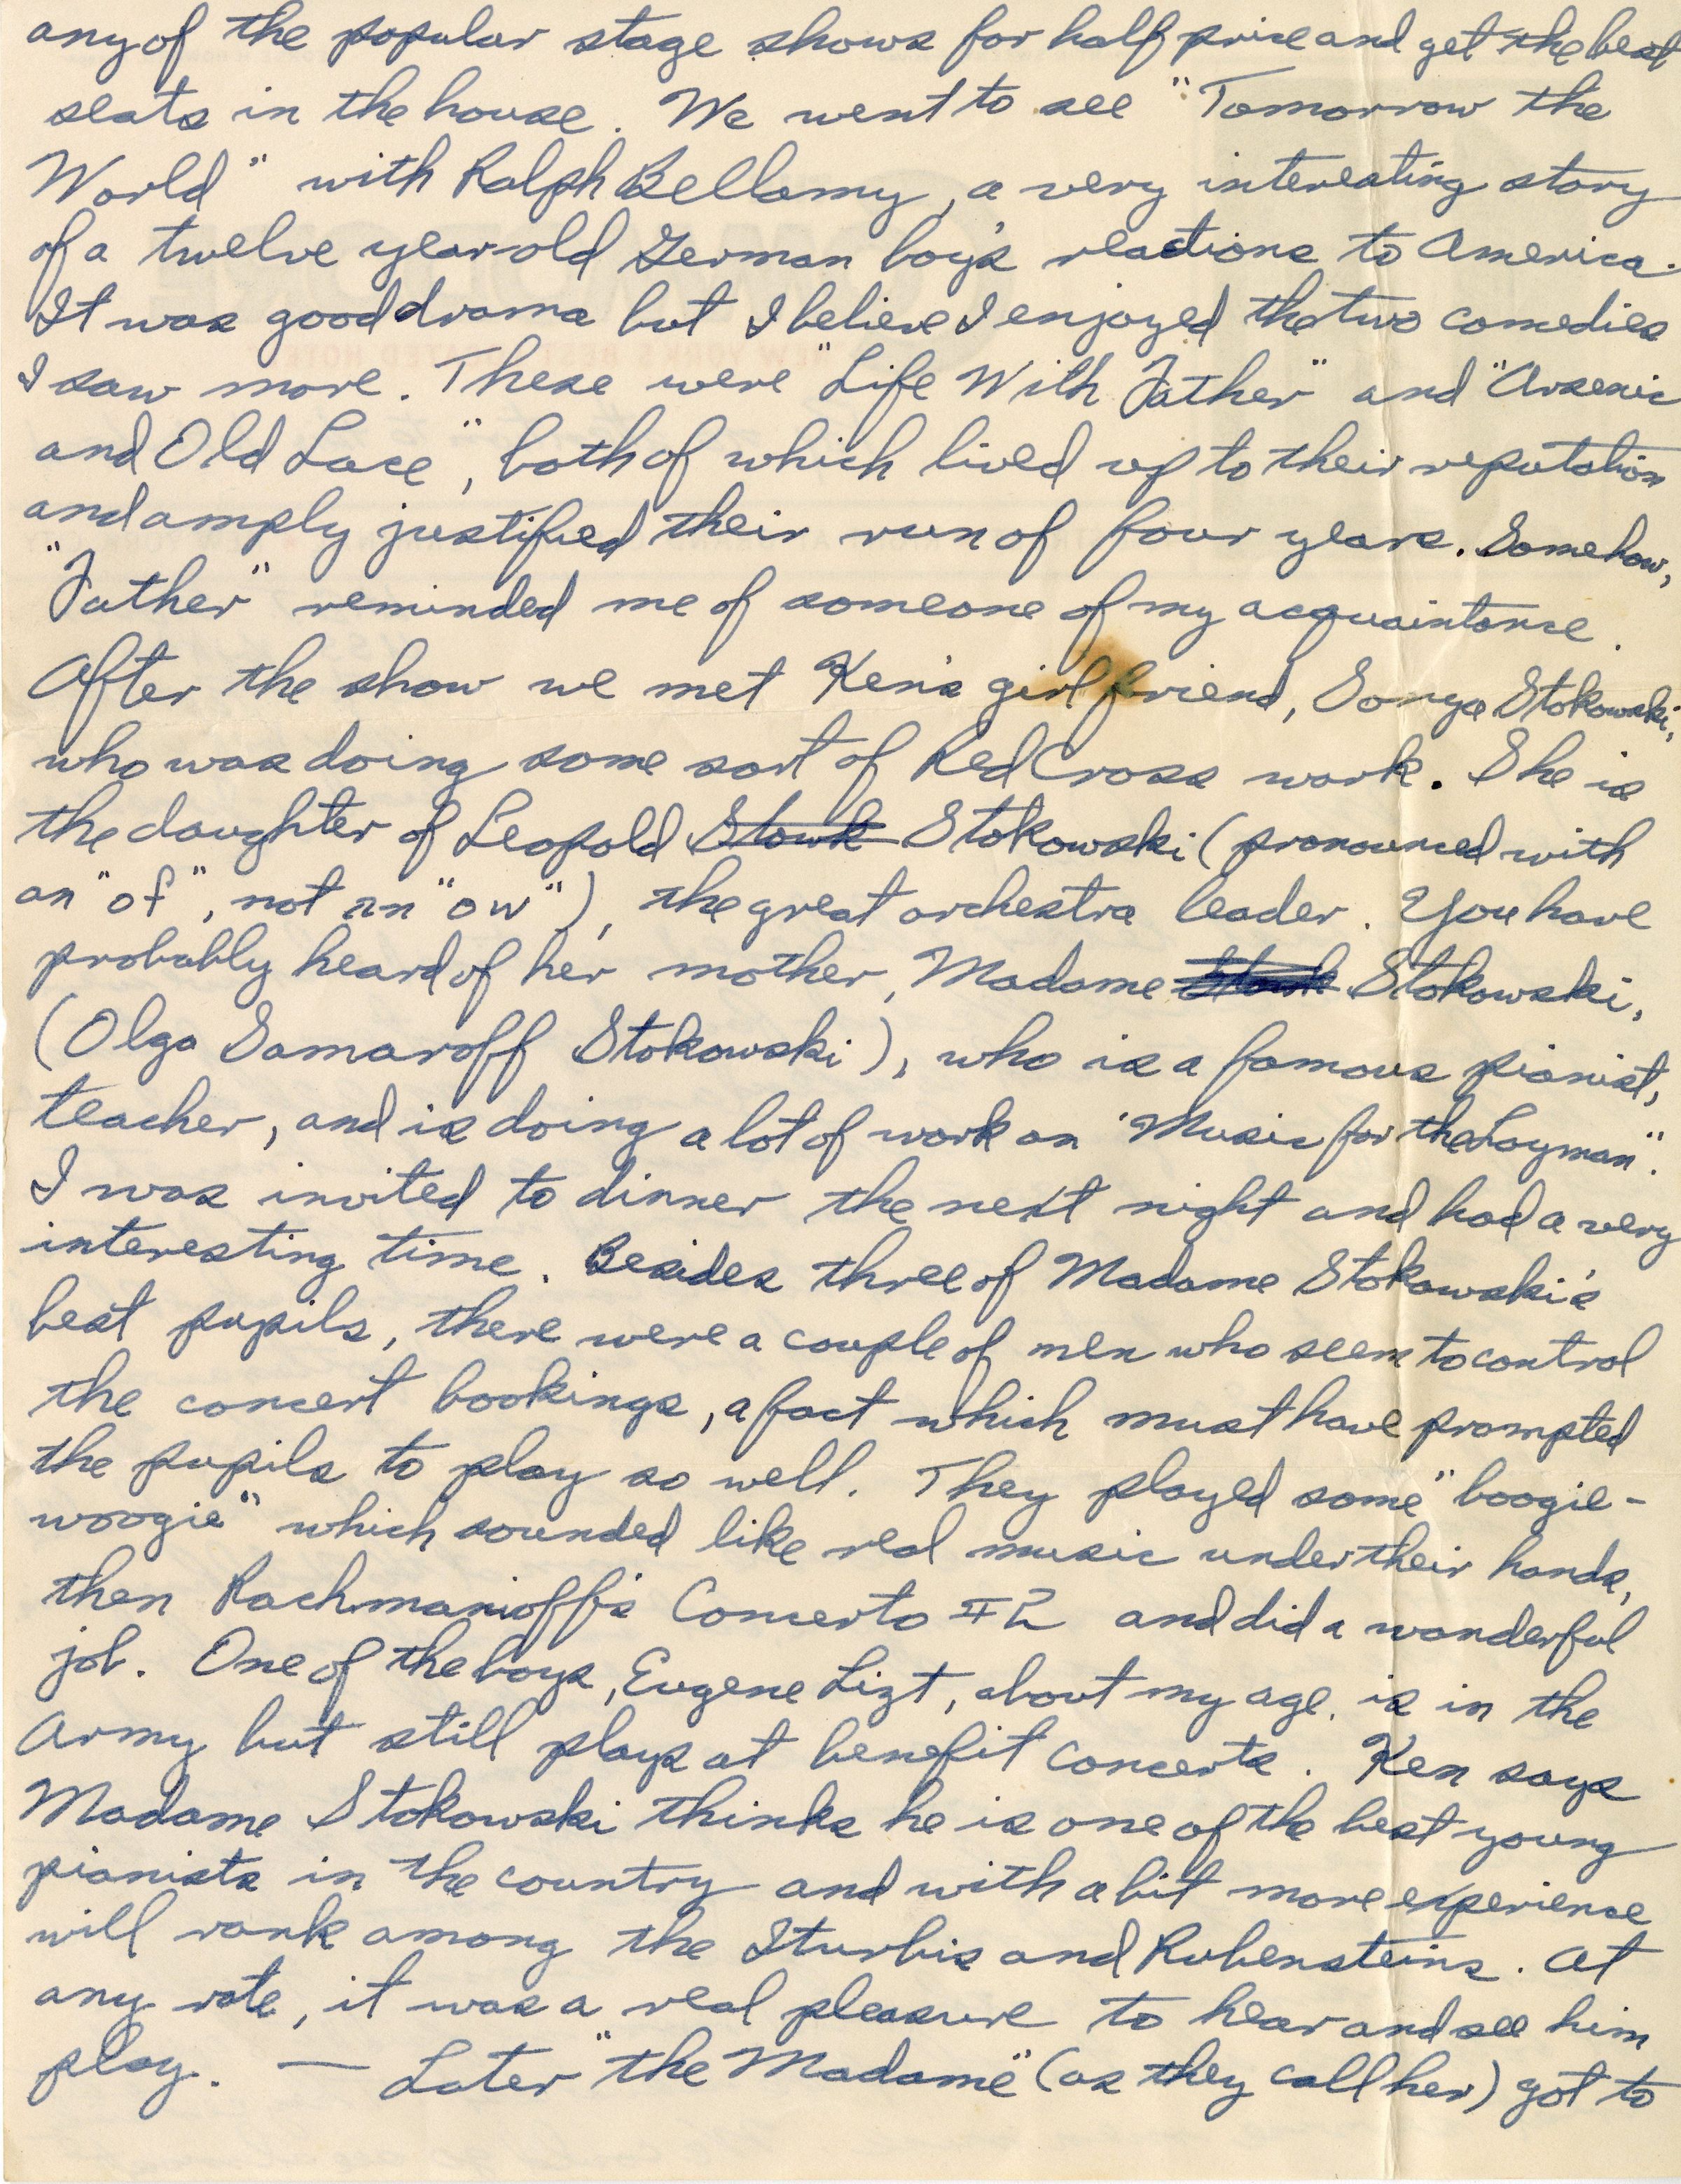 any of the popular stage shows for half price and get the best
seats in the house. We went to see "Tomorrow the
World" with Ralph Bellamy, a very interesting story
of a twelve year old German boy's reactions to America.
It was good drama but I believe I enjoyed the two comedies
I saw more. These were "Life With Father" and "Arsenic
and Old Lace", both of which lived up to their reputation
and amply justified their run of four years. Somehow,
"Father" reminded me of someone of my acquaintance.
After the show we met Ken's girl friend, Sonya Stokowski,
who was doing some sort of Red Cross work. She is
the daughter of Leopold Stowk Stokowski (pronounced with
an "of", not an "ow"), the great orchestra leader. You have
probably heard of her mother, Madame Stokowski,
(Olga Samaroff Stokowski), who is a famous pianist,
teacher, and is doing a lot of work on "Music for the Layman".
I was invited to dinner the next night and had a very
interesting time. Besides three of Madame Stokowski's
best pupils, there were a couple of men who seem to control
the concert bookings, a fact which must have prompted
the pupils to play so well. They played some "boogie-
woogie" which sounded like real music under their hands,
then Rachmanioff's Concerto #2 and did a wonderful
job. One of the boys, Eugene Lizt, about my age, is in the
Army but still plays at benefit concerts. Ken says
Madame Stokowski thinks he is one of the best young
pianists in the country and with a bit more experience
will rank among the Iturbis and Rubensteins. At
any rate, it was a real pleasure to hear and see him
play. — Later "the Madame" (as they call her) got to